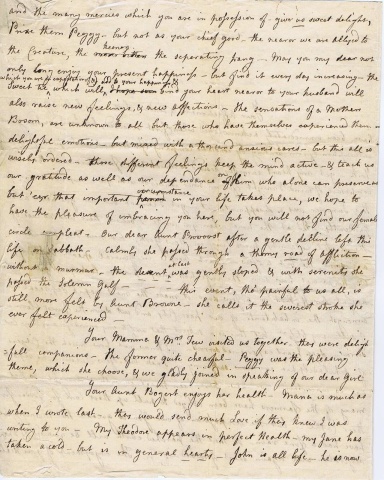 and the many mercies which you are in possession of - give us sweet delight,
Prize them Peggy - but not as your chief good - the nearer we are allyed to
the Creature, the keener the separating pang - May you my dear not
only long enjoy your present happiness - but find it every day increasing - the
which you are in expectation of will add to your happiness &
Sweet tie which will, bind your heart nearer to your husband will
also raise new feelings, & new affections - the sensations of a Mothers
Bosom, are unknown to all but those who have themselves experienced them -
delightful emotions - but mixed with a thousand anxious cares - but this all is
wisely ordered - these different feelings keep the mind active - & teach us
our gratitude as well as our dependance on him who alone can preserve us
circumstance
but 'ere that important in your life takes place, we hope to
have the pleasure of embracing you here, but you will not find our female
circle compleat - Our dear Aunt Provoost after a gentle decline left this
life on sabbath - Calmly she passed through a thorny road of affliction -
at last
without a murmur - the descent, was gently sloped & with serenity she
passed the solemn Gulf - this event, tho painful to us all, is
still more felt by Aunt Browne - she calls it the severest stroke she
ever felt experienced
Your Mamma & Mrs. Tew visited us together. They were deligh
-full companions - The former quite chearful - Peggy was the pleasing
theme, which she choose, & we gladly joined in speaking of our dear Girl
Your Aunt Bogert enjoys her health - Mama is much as
when I wrote last - they would send much Love if they knew I was
writing to you - My Theodore appears in perfect Health - my Jane has
taken a cold - but is in general hearty - John is all life - he is now